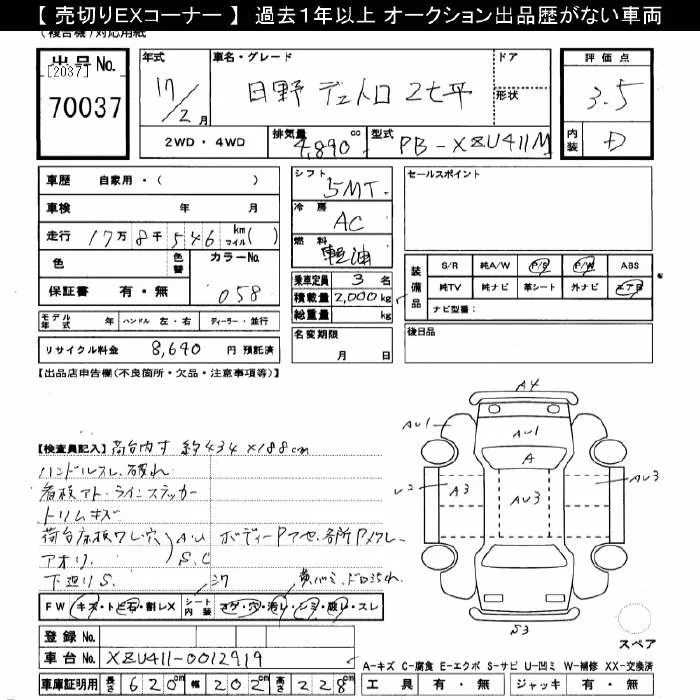 【 売切りEXコーナー 】 過去１年以上 オークション出品歴がない車両
(複合機) 対応用紙
出品 No.
[2037]
70037
年式
17/2月
車名・グレード
日野 デュトロ 2t平
ドア
形状
評価点
3.5
内装 D
2WD・4WD
排気量 4,890 cc
型式 PB-XZU411M
車歴 自家用・( )
車検 年 月
走行 17万8千546 km マイル( )
色
色替
カラーNo. 058
保証書 有・無
モデル年式 年 ハンドル 左・右 ディーラー・並行
リサイクル料金 8,690 円 預託済
シフト 5MT.
冷房 AC
燃料 軽油
乗車定員 3 名
積載量 2,000 kg
総重量 kg
名変期限
月 日
セールスポイント
装備品
S/R 純A/W P/S P/W ABS
純TV 純ナビ 革シート 外ナビ エアB
ナビ型番：
後日品
【出品店申告欄(不良箇所・欠品・注意事項等)】
【検査員記入】 荷台内寸 約434×188cm
ハンドルスレ、破れ
看板アト・ラインステッカー
トリムキズ
荷台床板ワレ・穴
アオリ
A.U
S.C
ボディーPアセ、各所Pメクレ
下廻りS.
シワ
黄バミ、ドロ汚れ
FW キズ・トビ石・割レX
シート内装 コゲ・穴・汚レ・シミ・破レ・スレ
登録 No.
車台 No. XZU411-0012919
車庫証明用 長さ 620cm 幅 202cm 高さ 228cm
A4
AU1
AU1
A
A3
AU3
AU3
S3
スペア
A－キズ C－腐食 E－エクボ S－サビ U－凹ミ W－補修 XX－交換済
工具 有・無 ジャッキ 有・無